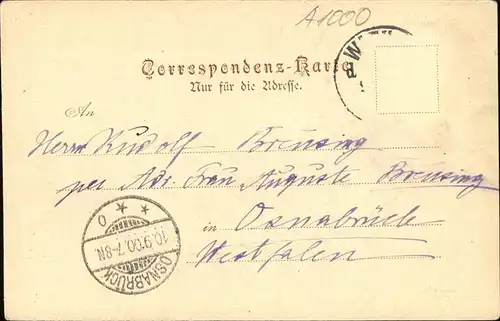 A1000
W
Correspondenz-Karte
Nur für die Adresse.
An
Herrn Rudolf Breusing
per Adr. Frau Auguste Breusing
in Osnabrück
Westfalen
10.9.00. 7-8N.
OSNABRÜCK